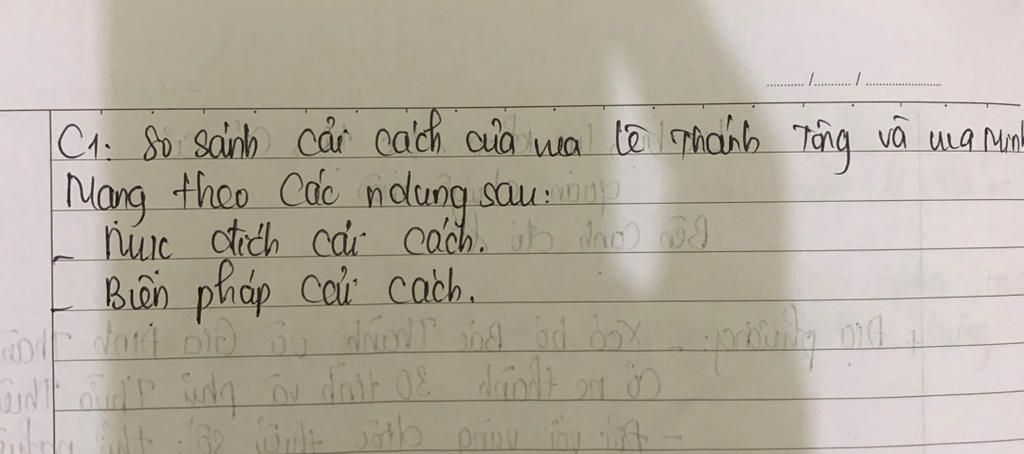 C1: So sánh cải cách của vua Lê Thánh Tông và vua Minh
Mạng theo các ndung sau:
- Mục đích cải cách.
- Biện pháp cải cách.